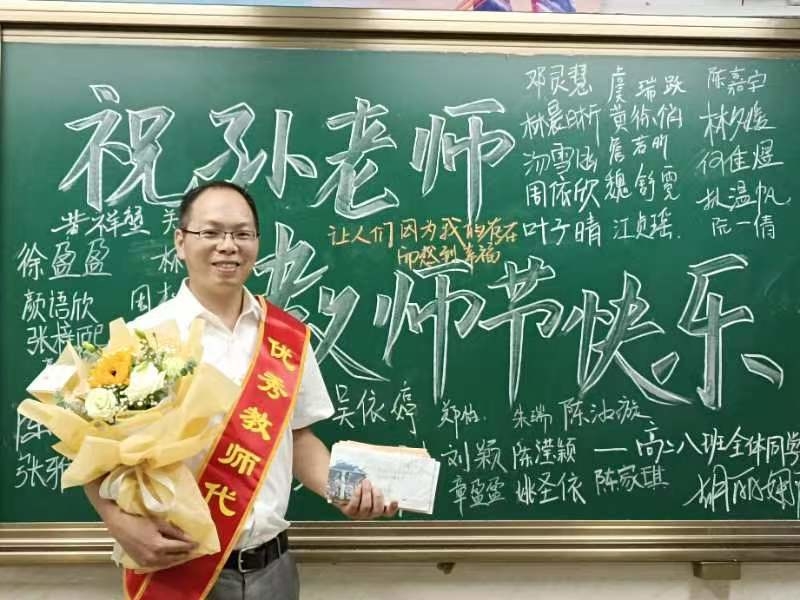 祝孙老师
教师节快乐
让人们因为我的存在
而感到幸福
邓灵慧 虞瑞跃 陈嘉宇
林晨昕 黄
雪涵 詹若昕 何佳煜
周依欣 魏舒霓 温帆
叶子晴 江贞瑶 阮一倩
黄祥
徐盈盈 林
颜语欣 周
张梓熙
陈
张雅
吴依婷 郑 朱瑞 陈
刘颖 陈滢颖 ——高二八班全体同学
章盈盈 姚圣依 陈家琪 胡
优秀教师代